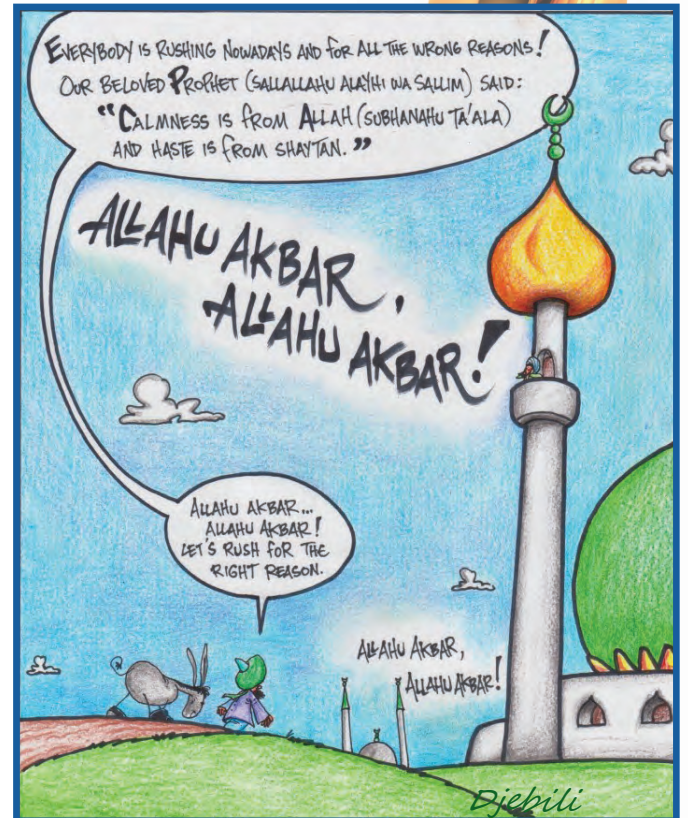 EVERYBODY IS RUSHING NOWADAYS AND FOR ALL THE WRONG REASONS!
OUR BELOVED PROPHET (SALLALLAHU ALAYHI WA SALLIM) SAID:
“CALMNESS IS FROM ALLAH (SUBHANAHU TA'ALA)
AND HASTE IS FROM SHAYTAN.”
ALLAHU AKBAR,
ALLAHU AKBAR!
ALLAHU AKBAR...
ALLAHU AKBAR!
LET'S RUSH FOR THE
RIGHT REASON.
ALLAHU AKBAR,
ALLAHU AKBAR!
Djebili